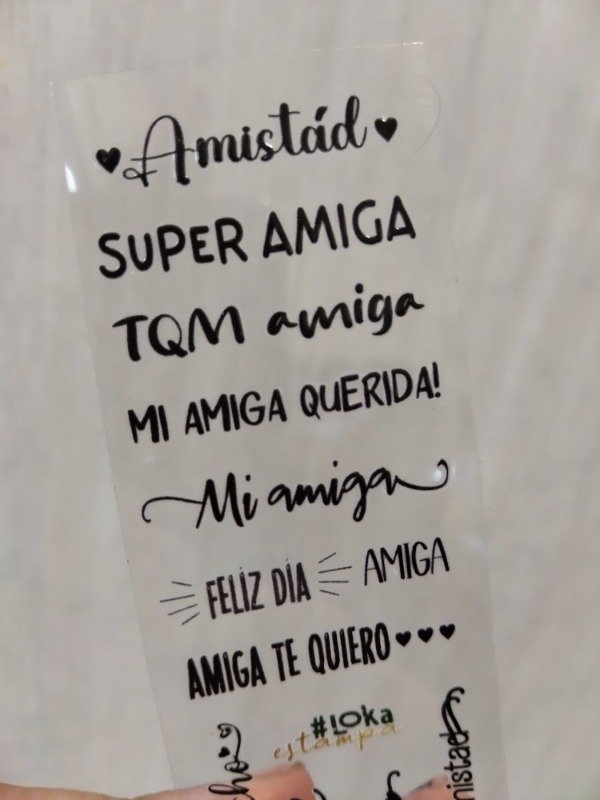 Amistád
SUPER AMIGA
TQM amiga
MI AMIGA QUERIDA!
Mi amiga
FELİZ DİA AMIGA
AMIGA TE QUIERO
#LOKa
estampa